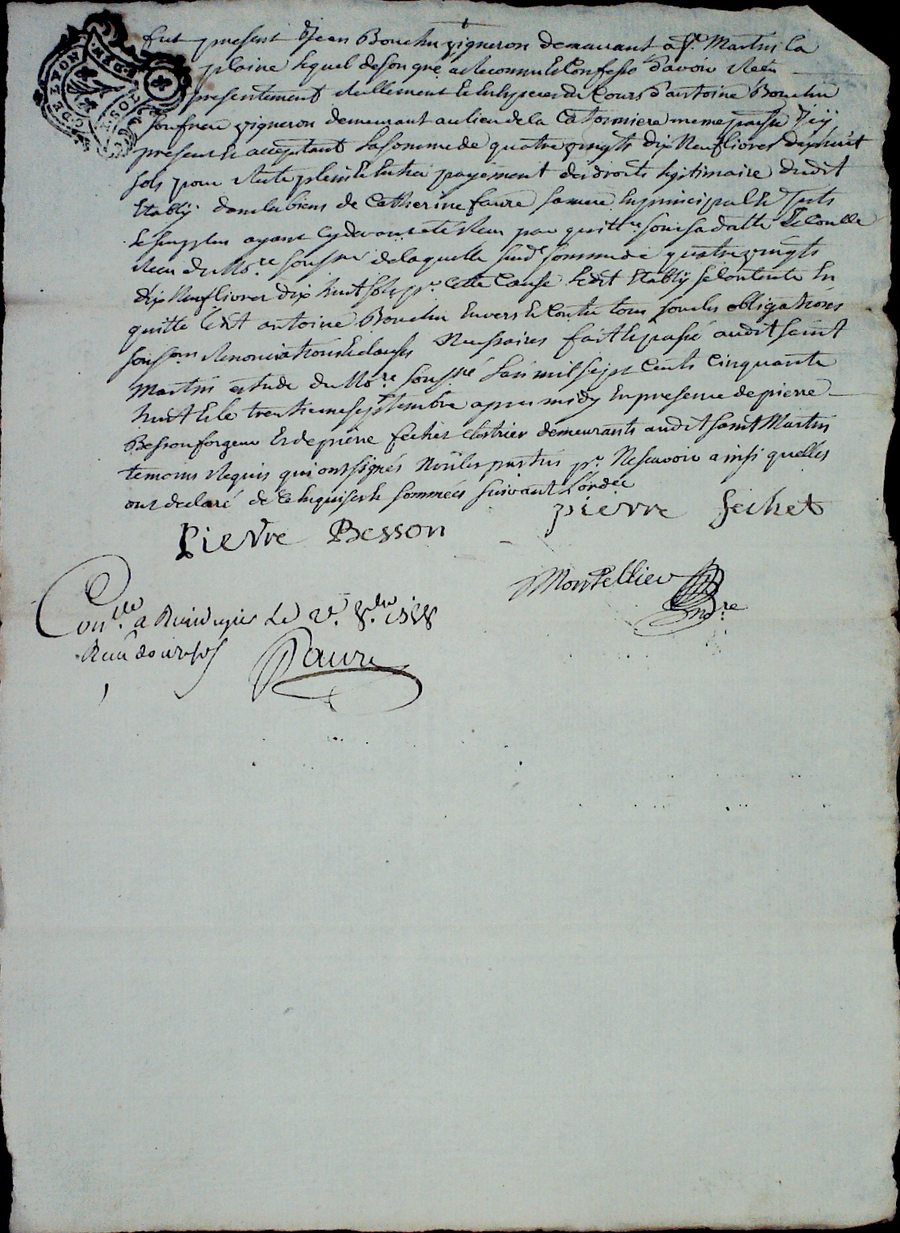 GE. DE LYON
fut present Jean Bouchu vigneron demeurant a St. Martin la
plaine lequel de son gre a Reconnu & Confessé d'avoir Receu
presentement Reellement & En Especes du Cours d'antoine Bouchu
son frere vigneron demeurant au lieu de la Catonniere meme paroisse Icy
present & acceptant La somme de quatre vingts dix Neuf livres dix huit
sols pour Reste plein & Entier payement des droits legitimaire dudit
Etably dans les biens de Catherine faure sa mere En principal & Jnts
le surplus ayant cy devant eté Receu par quittce sous sa datte
Receu du Nore. soussné de laquelle susde. somme de quatre vingts
dix Neuf livres dix huit sols pr. Cette Cause Ledit Etably se Contente En
quitte Ledit antoine Bouchu Envers & Contre tous sous les obligations
soumons. Renonciations & clauses Necessaires fait & passé audit saint
Martin Estude du Nore. soussné Lan mil sept Cents Cinquante
huit & le trentieme septembre apres midy En presence de pierre
Besson forgeur & de pierre fechet Clostrier demeurants audit saint Martin
temoins Requis qui ont signés Non les parties pr. Ne scavoir ainsi quelles
ont declaré de ce Enquises & sommées suivant L'ordce
Pierre Besson pierre fechet
Montellier
Nore
Conllé. a Rivedegier Le 2e. 8bre 1758
Receu douze sols
faure